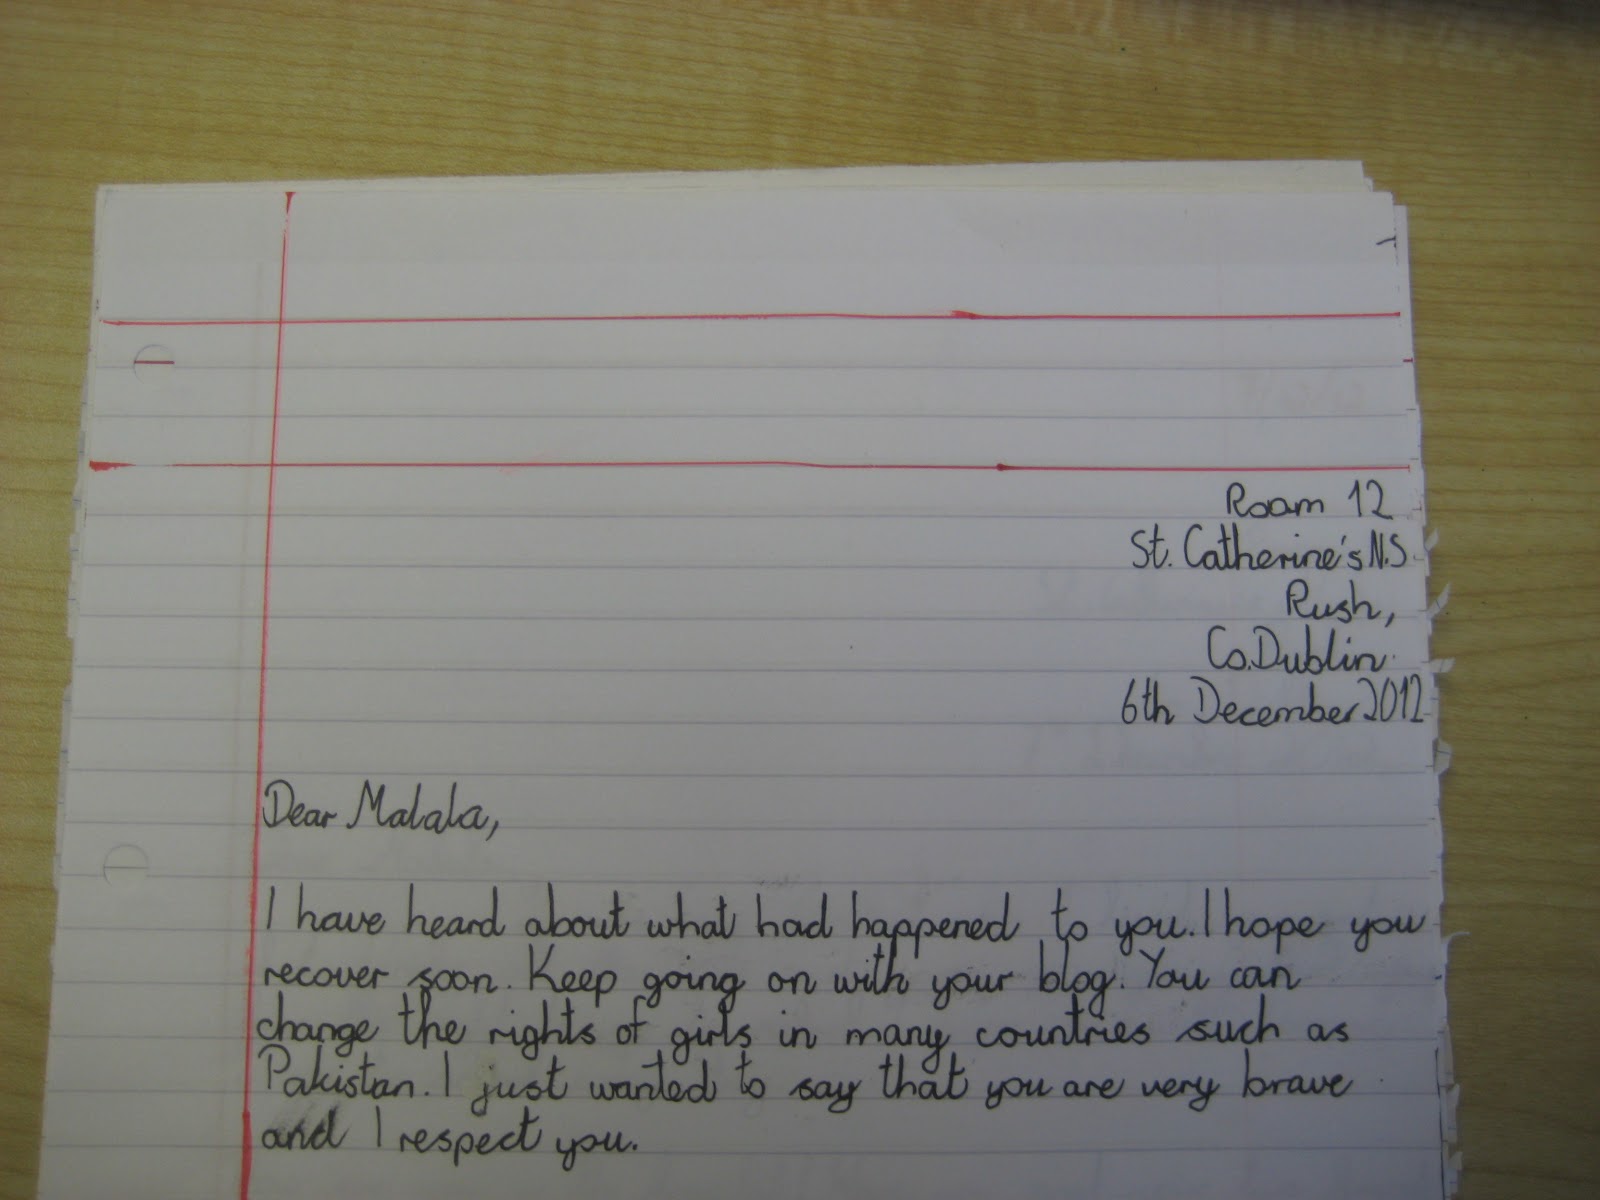 Room 12
St. Catherine's N.S.
Rush,
Co. Dublin.
6th December 2012
Dear Malala,
I have heard about what had happened to you. I hope you
recover soon. Keep going on with your blog. You can
change the rights of girls in many countries such as
Pakistan. I just wanted to say that you are very brave
and I respect you.